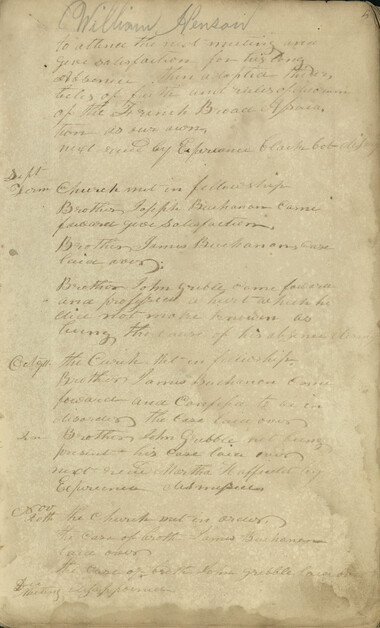 William Henson
to attend the next meeting and
give satisfaction for his long
absence then adopted the ar
ticles of faith and rules of decorum
of the French Broad Associa
tion as our own
next recd by Experience Clark
Sept
Term Church met in fellowship
Brother Joseph Buchanon came
foward give satisfaction
Brother James Buchanons case
laid over
Brother John Gribble came foward
and professed a hurt which he
did not make known as
being the cause of his absence
Oct 9th the Curch Met in felowship
Brother James Buchanon came
foward and confesst to be in
disorder the case laid over
Brother John Gribble not being
present his case laid over
next recd Martha by
Experience dismissed
Nov
the Church met in order
the case of broth James Buchanon
laid over
the case of broth John Gribble laid over